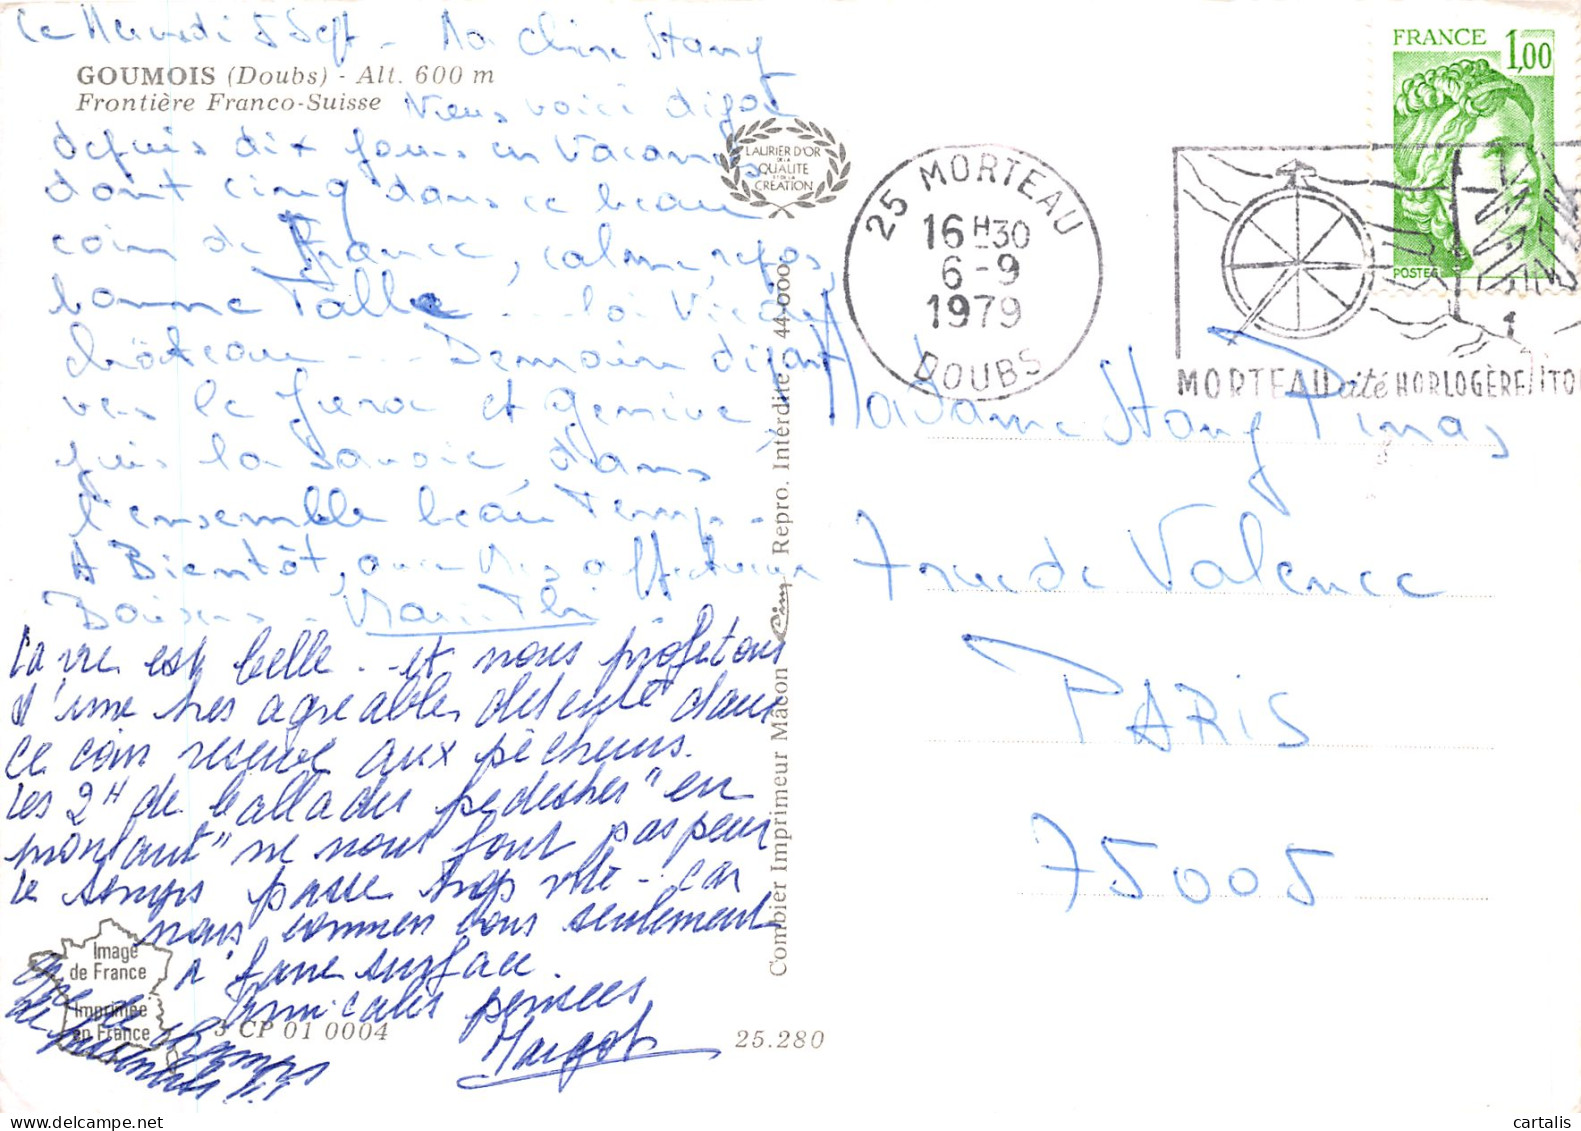 Le Mercredi 5 Sept - Ma chère Stany
GOUMOIS (Doubs) - Alt. 600 m
Frontière Franco-Suisse
Nous voici déjà
depuis dix jours en vacances
dont cinq dans ce beau
coin de France, calme, repos,
bonne Table ... la vie de
château ... Demain départ
vers le Jura et Genève,
puis la Savoie, dans
l'ensemble beau Temps -
A Bientôt, avec mes affectueux
Baisers -
La vie est belle .. et nous profitons
d'une très agréable détente dans
ce coin reservé aux pêcheurs.
Les 2H de ballades pédestres "en
montant" ne nous font pas peur
le temps passe trop vite - car
nous commençons seulement
à faire surface.
Amicales pensées
Margot
Image
de France
Imprimée
en France
3 CP 01 0004
25.280
LAURIER D'OR
DE LA
QUALITE
ET DE LA
CRÉATION
Combier Imprimeur Mâcon Cim Repro. Interdite 44.000
FRANCE 1,00
POSTES
25 MORTEAU
16H30
6-9
1979
DOUBS
MORTEAU cité HORLOGÈRE
Madame Stany Pinas
7 rue de Valence
PARIS
75005